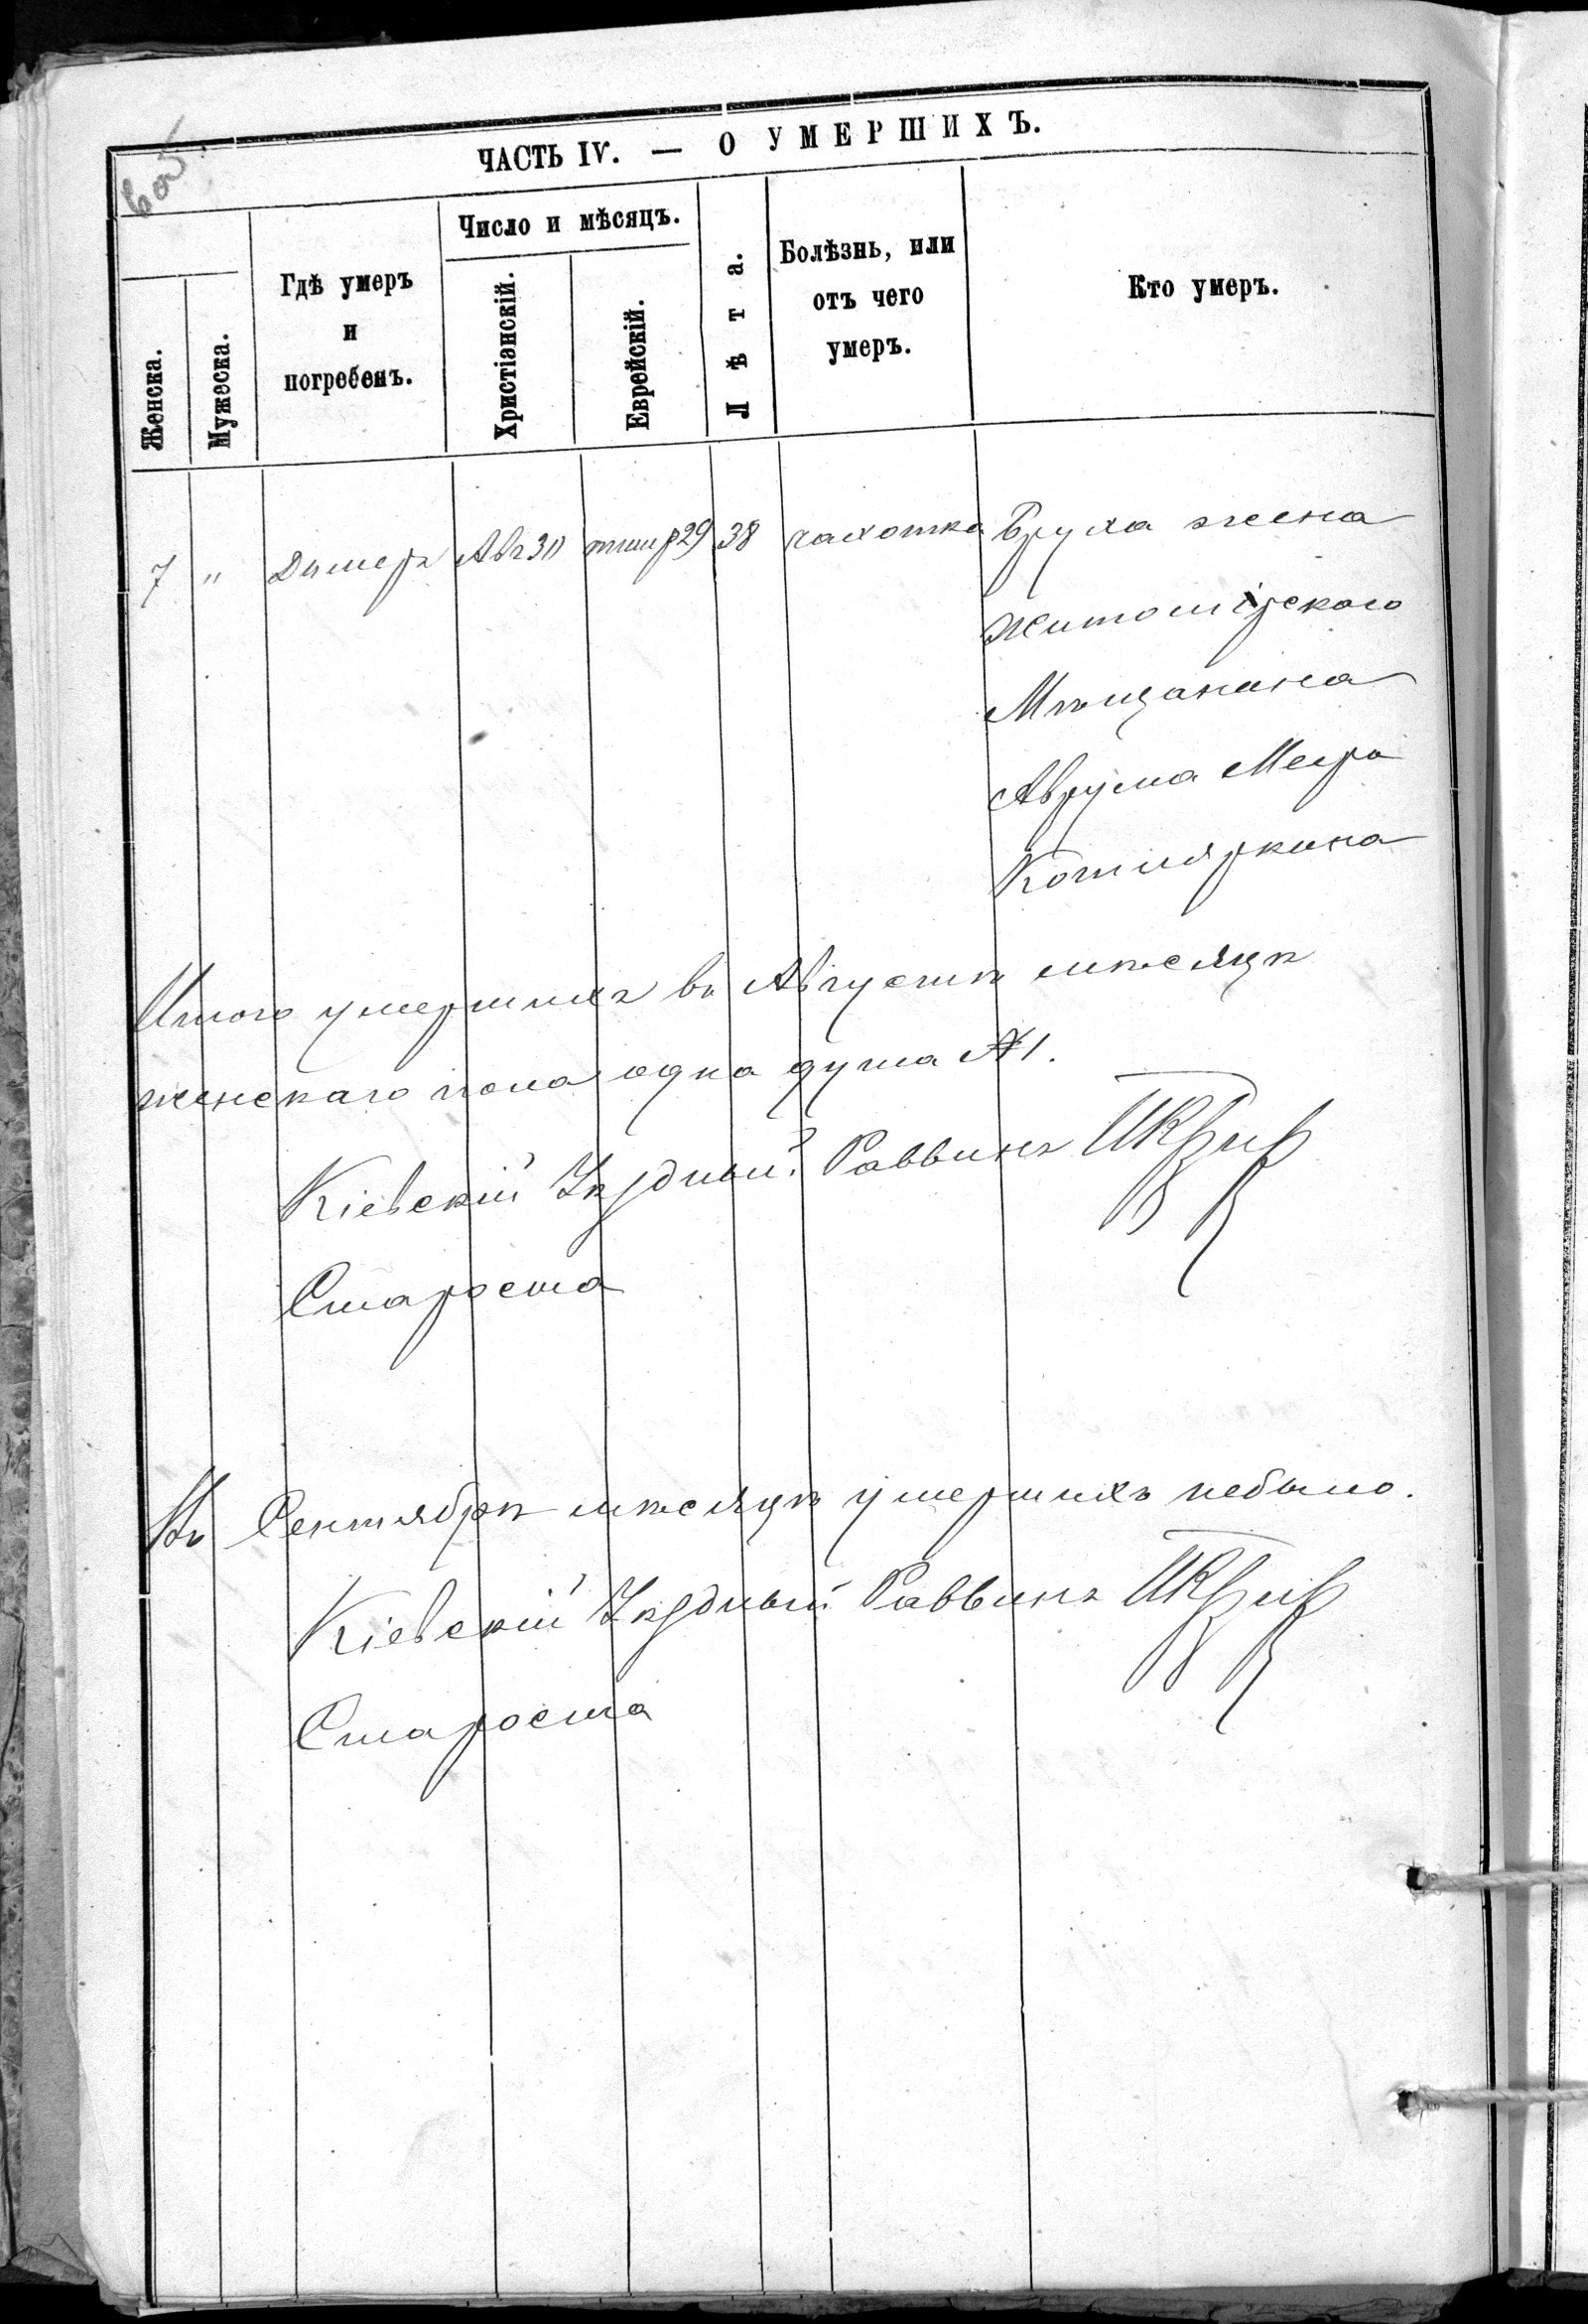 ЧАСТЬ IV. — О УМЕРШИХЪ.
Женска.
Мужеска.
Гдѣ умеръ
и
погребенъ.
Число и мѣсяцъ.
Христіанскій.
Еврейскій.
Лѣта.
Болѣзнь, или
отъ чего
умеръ.
Кто умеръ.
7 " Дымеръ Авг 30 тишр 29 38 чахотка Бруха жена
Житомірскаго
Мѣщанина
Аврума Меера
Котляркина
Итого умершихъ въ Августѣ мѣсяцѣ
женскаго пола одна душа №1.
Кіевскій Уѣздный Раввинъ
Староста
Въ Сентябрѣ мѣсяцѣ умершихъ небыло.
Кіевскій Уѣздный Раввинъ
Староста